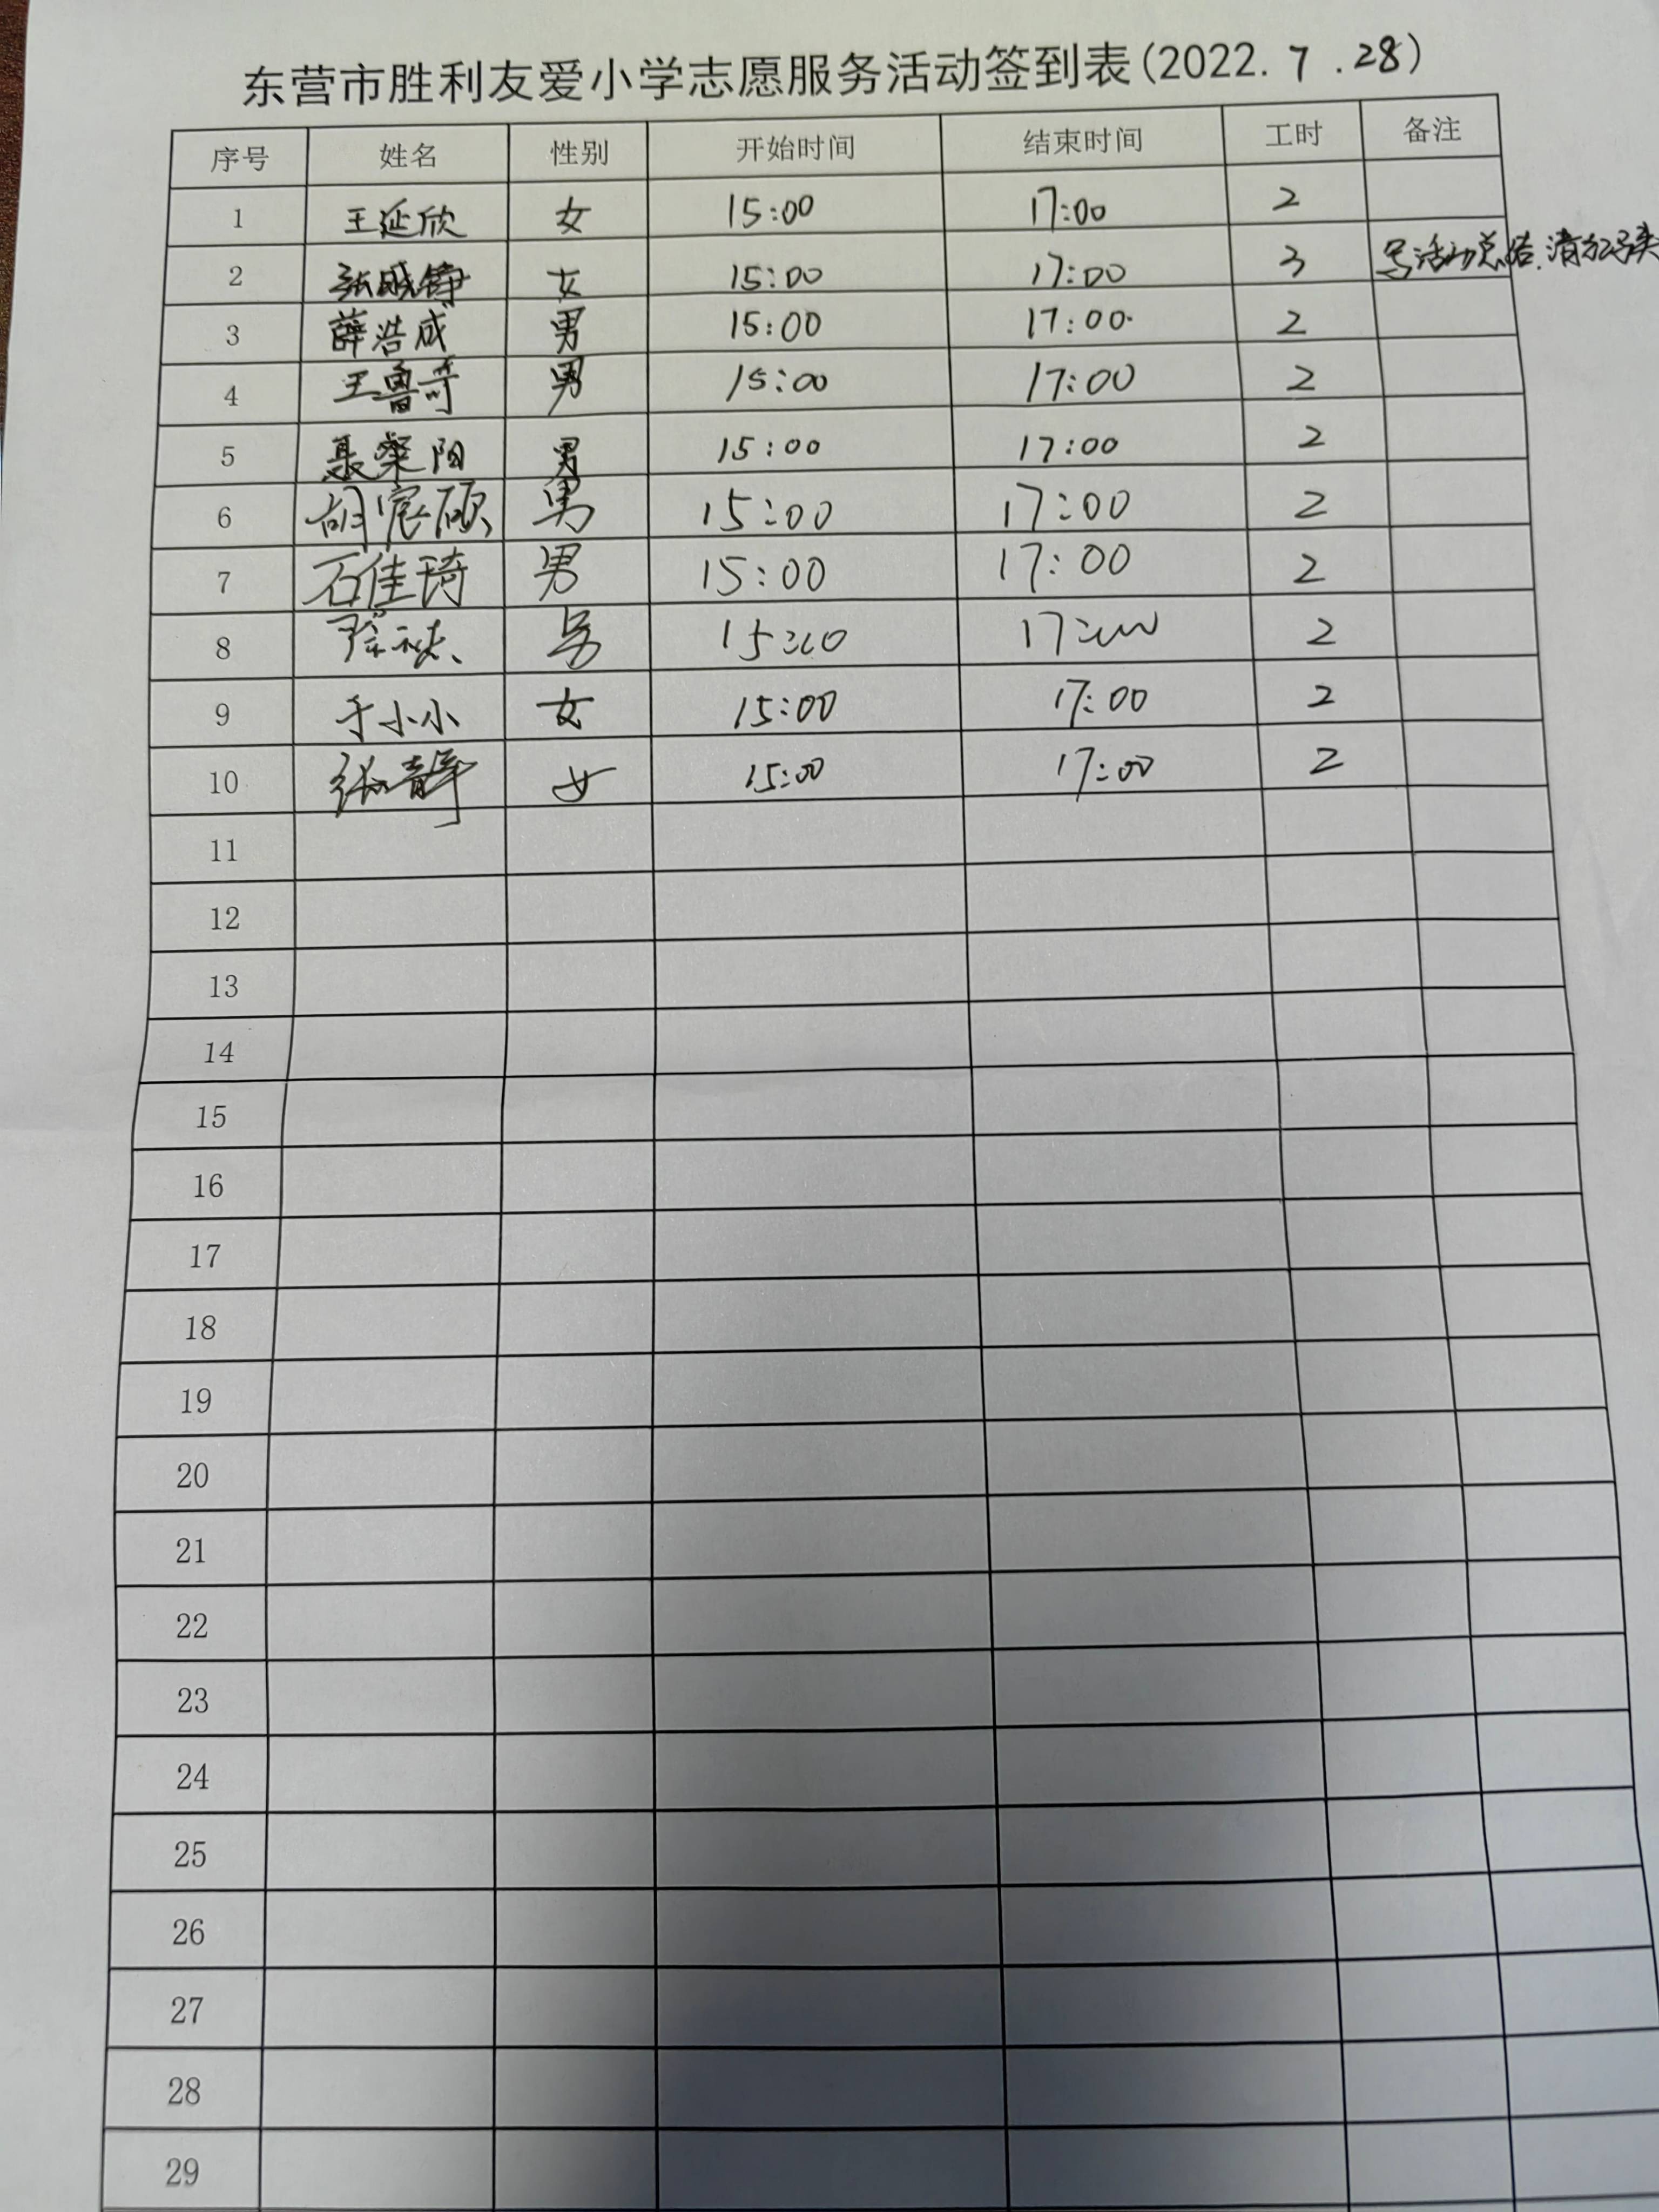 东营市胜利友爱小学志愿服务活动签到表(2022.7.28)
序号 姓名 性别 开始时间 结束时间 工时 备注
1 王延欣 女 15:00 17:00 2
2 女 15:00 17:00 3 写活动总结.清
3 薛浩成 男 15:00 17:00 2
4 王鲁奇 男 15:00 17:00 2
5 聂粲阳 男 15:00 17:00 2
6 胡宸硕 男 15:00 17:00 2
7 石佳琦 男 15:00 17:00 2
8 男 15:00 17:00 2
9 于小小 女 15:00 17:00 2
10 张静 女 15:00 17:00 2
11
12
13
14
15
16
17
18
19
20
21
22
23
24
25
26
27
28
29